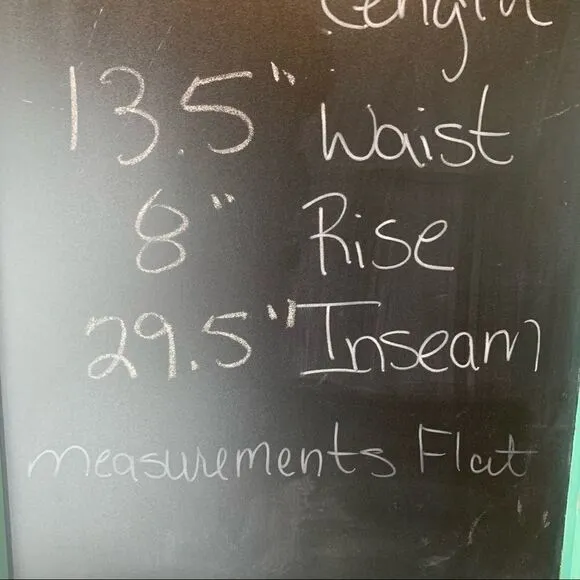 Length
13.5" Waist
8" Rise
29.5" Inseam
measurements Flat